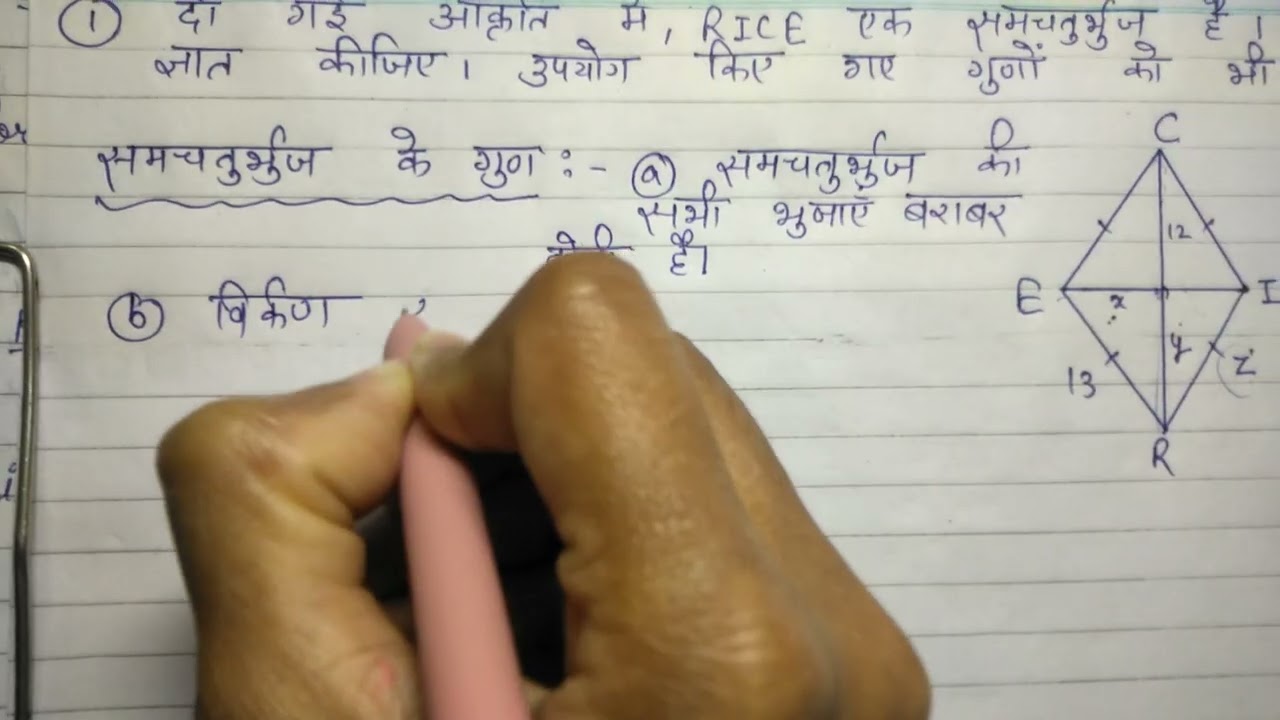 ① दी गई आकृति में, RICE एक समचतुर्भुज है।
ज्ञात कीजिए। उपयोग किए गए गुणों को भी
समचतुर्भुज के गुण :- ⓐ समचतुर्भुज की
सभी भुजाएँ बराबर
होती है।
ⓑ विर्कण
C
12
E
I
x
y
z
13
R